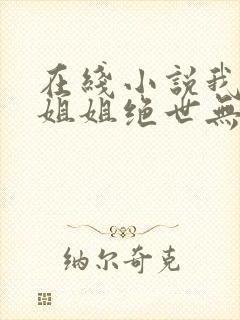 在綫小説我
姐姐绝世無
纳尔奇克